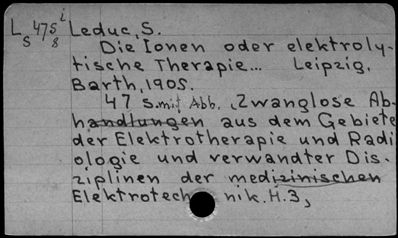 L S 475 i 8 Leduc, S.
Die Ionen oder elektroly-
tische Therapie... Leipzig,
Barth, 1905.
47 S. mit Abb. (Zwanglose Ab-
handlungen aus dem Gebiete
der Elektrotherapie und Radi
ologie und verwandter Dis-
ziplinen der medizinischen
Elektrotechnik. H.3,